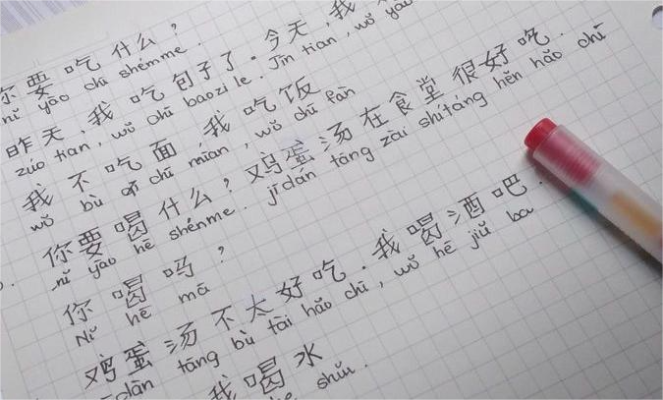 你要吃什么?
nǐ yāo chī shénme.
昨天,我吃包子了.今天,我
zúo tian, wǒ chī baozi le. Jīn tian, wǒ yào
我不吃面,我吃饭
wǒ bù chī mian, wǒ chī fàn
你要喝什么?鸡蛋汤在食堂很好吃.
nǐ yào hē shénme. jīdàn tāng zài shítáng hěn hǎo chī
你喝吗?
Nǐ hē mā
鸡蛋汤不太好吃.我喝酒吧.
dàn tāng bù tài hǎo chī, wǒ hē jiǔ ba
我喝水
he shuǐ.